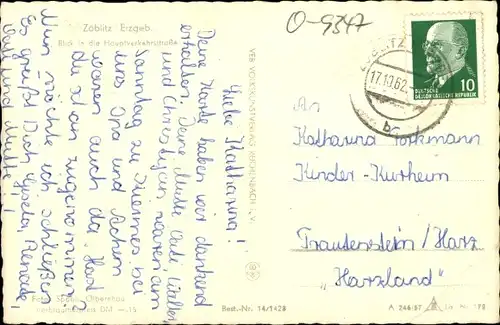 Zöblitz Erzgeb.
Blick in die Hauptverkehrsstraße
O-9347
Liebe Kathrina!
Deine Karte haben wir dankend
erhalten. Deine Mutti,
und Christian waren am
Sonntag zu bei
uns. Opa und Achim
waren auch da. Hast
du zugenommen?
Nun möchte ich schließen.
Es grüßt Dich Gisela, Renate,
und Mutti!
Foto: Olbernhau
Verkaufspreis DM —.15
Best.-Nr. 14/1428
VEB VOLKSKUNSTVERLAG REICHENBACH i. V.
17.10.62
b
DEUTSCHE
DEMOKRATISCHE REPUBLIK
10
An
Katharina
Kinder-Kurheim
Trautenstein/Harz
"Harzland"
A 246/57